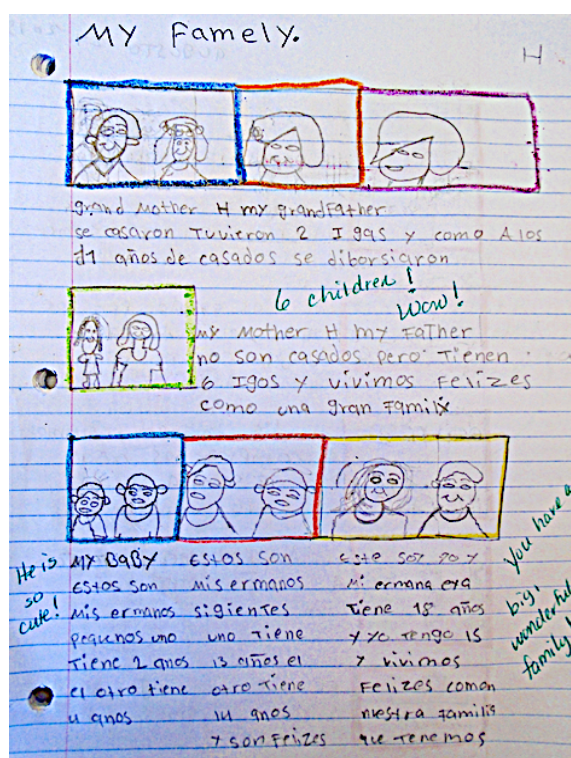 My Famely.
H
grand Mother H my grandFather
se casaron Tuvieron 2 Igas y como A los
11 años de casados se diborsiaron
6 children!
Wow!
my Mother H my Father
no son casados pero Tienen
6 Igos y vivimos Felizes
como una gran Family
He is
so
cute!
MY BaBY
Estos son
Mis ermanos
pequenos uno
Tiene 2 anos
el otro tiene
4 anos
Estos son
mis ermanos
sigientes
uno Tiene
13 años el
otro Tiene
14 anos
y son Felzes
Este soy yo y
Mi ermana eya
Tiene 18 años
y yo Tengo 15
y vivimos
Felizes comon
nuestra familis
que tenemos
you have a
big,
wonderful
family!